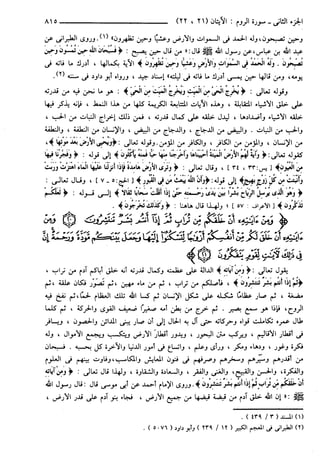 الجزء الثاني - سورة الروم : الآيتان (٢١ ، ٢٢) ٨١٥
وحين تصبحون، وله الحمد في السموات والأرض وعشياً وحين تظهرون» (١). وروى الطبراني عن
عبد الله بن عباس، عن رسول الله ﷺ قال: « من قال حين يصبح : ﴿ فَسُبْحَانَ اللَّهِ حِينَ تُمْسُونَ وَحِينَ
تُصْبِحُونَ . وَلَهُ الْحَمْدُ فِي السَّمَوَاتِ وَالْأَرْضِ وَعَشِيًّا وَحِينَ تُظْهِرُونَ ﴾ الآية بكمالها ، أدرك ما فاته في
يومه، ومن قالها حين يمسي أدرك ما فاته في ليلته» إسناد جيد ، ورواه أبو داود في سننه (٢).
وقوله تعالى : ﴿ يُخْرِجُ الْحَيَّ مِنَ الْمَيِّتِ وَيُخْرِجُ الْمَيِّتَ مِنَ الْحَيِّ ﴾ : هو ما نحن فيه من قدرته
على خلق الأشياء المتقابلة ، وهذه الآيات المتتابعة الكريمة كلها من هذا النمط ، فإنه يذكر فيها
خلقه الأشياء وأضدادها ، ليدل خلقه على كمال قدرته ، فمن ذلك إخراج النبات من الحب ،
والحب من النبات ، والبيض من الدجاج ، والدجاج من البيض ، والإنسان من النطفة ، والنطفة
من الإنسان ، والمؤمن من الكافر ، والكافر من المؤمن. وقوله تعالى: ﴿ وَيُحْيِي الْأَرْضَ بَعْدَ مَوْتِهَا ﴾،
كقوله تعالى: ﴿ وَآيَةٌ لَهُمُ الْأَرْضُ الْمَيْتَةُ أَحْيَيْنَاهَا وَأَخْرَجْنَا مِنْهَا حَبًّا فَمِنْهُ يَأْكُلُونَ ﴾ إلى قوله : ﴿ وَفَجَّرْنَا فِيهَا
مِنَ الْعُيُونِ ﴾ [ يس: ٣٣ ، ٣٤ ] ، وقال تعالى : ﴿ وَتَرَى الْأَرْضَ هَامِدَةً فَإِذَا أَنْزَلْنَا عَلَيْهَا الْمَاءَ اهْتَزَّتْ وَرَبَتْ
وَأَنْبَتَتْ مِنْ كُلِّ زَوْجٍ بَهِيجٍ ﴾ إلى قوله: ﴿ وَأَنَّ اللَّهَ يَبْعَثُ مَنْ فِي الْقُبُورِ ﴾ [ الحج: ٥ - ٧ ] ، وقال تعالى :
﴿ وَهُوَ الَّذِي يُرْسِلُ الرِّيَاحَ بُشْرًا بَيْنَ يَدَيْ رَحْمَتِهِ حَتَّى إِذَا أَقَلَّتْ سَحَابًا ثِقَالًا ﴾ إلى قوله : ﴿ لَعَلَّكُمْ
تَذَكَّرُونَ ﴾ [ الأعراف : ٥٧ ] ؛ ولهذا قال هاهنا : ﴿ وَكَذَلِكَ تُخْرَجُونَ ﴾ .
﴿ وَمِنْ آيَاتِهِ أَنْ خَلَقَكُمْ مِنْ تُرَابٍ ثُمَّ إِذَا أَنْتُمْ بَشَرٌ تَنْتَشِرُونَ
وَمِنْ آيَاتِهِ أَنْ خَلَقَ لَكُمْ مِنْ أَنْفُسِكُمْ أَزْوَاجًا لِتَسْكُنُوا إِلَيْهَا وَجَعَلَ بَيْنَكُمْ مَوَدَّةً وَرَحْمَةً إِنَّ
فِي ذَلِكَ لَآيَاتٍ لِقَوْمٍ يَتَفَكَّرُونَ ﴾
يقول تعالى : ﴿ وَمِنْ آيَاتِهِ ﴾ الدالة على عظمته وكمال قدرته أنه خلق أباكم آدم من تراب ،
﴿ ثُمَّ إِذَا أَنْتُمْ بَشَرٌ تَنْتَشِرُونَ ﴾ ، فأصلكم من تراب ، ثم من ماء مهين ، ثم تصور فكان علقة ، ثم
مضغة ، ثم صار عظاماً شكله على شكل الإنسان ثم كسا الله تلك العظام لحماً، ثم نفخ فيه
الروح، فإذا هو سميع بصير . ثم خرج من بطن أمه صغيراً ضعيف القوى والحركة ، ثم كلما
طال عمره تكاملت قواه وحركاته حتى آل به الحال إلى أن صار يبني المدائن والحصون ، ويسافر
في أقطار الأقاليم ، ويركب متن البحور ، ويدور أقطار الأرض ويكتسب ويجمع الأموال ، وله
فكرة وغور ، ودهاء ومكر ، ورأي وعلم ، واتساع في أمور الدنيا والآخرة كل بحسبه . فسبحان
من أقدرهم وسيرهم وسخرهم وصرفهم في فنون المعايش والمكاسب، وفاوت بينهم في العلوم
والفكرة، والحسن والقبح، والغنى والفقر ، والسعادة والشقاوة ، ولهذا قال تعالى : ﴿ وَمِنْ آيَاتِهِ
أَنْ خَلَقَكُمْ مِنْ تُرَابٍ ثُمَّ إِذَا أَنْتُمْ بَشَرٌ تَنْتَشِرُونَ ﴾. وروى الإمام أحمد عن أبي موسى قال : قال رسول الله
ﷺ : « إن الله خلق آدم من قبضة قبضها من جميع الأرض ، فجاء بنو آدم على قدر الأرض ،
(١) المسند (٣ / ٤٣٩) .
(٢) الطبراني في المعجم الكبير (١٢ / ٢٣٩) وأبو داود (٥٠٧٦) .